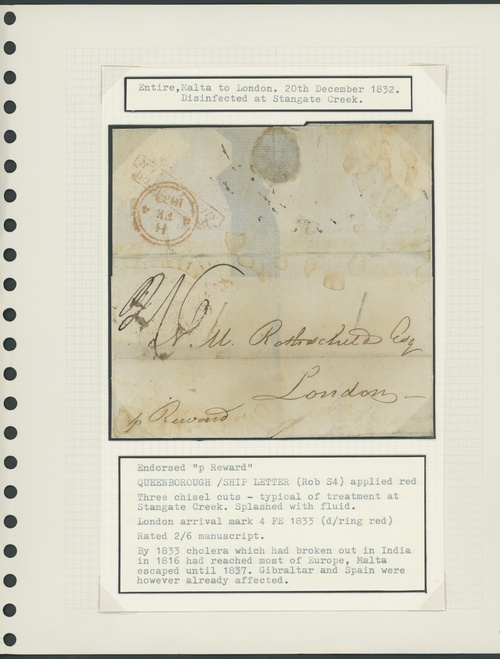 Entire,Malta to London. 20th December 1832.
Disinfected at Stangate Creek.
4 FE 4
1833
2/6
N. M. Rothschild Esq
London
p Reward
Endorsed "p Reward"
QUEENBOROUGH /SHIP LETTER (Rob S4) applied red
Three chisel cuts - typical of treatment at
Stangate Creek. Splashed with fluid.
London arrival mark 4 FE 1833 (d/ring red)
Rated 2/6 manuscript.
By 1833 cholera which had broken out in India
in 1816 had reached most of Europe, Malta
escaped until 1837. Gibraltar and Spain were
however already affected.